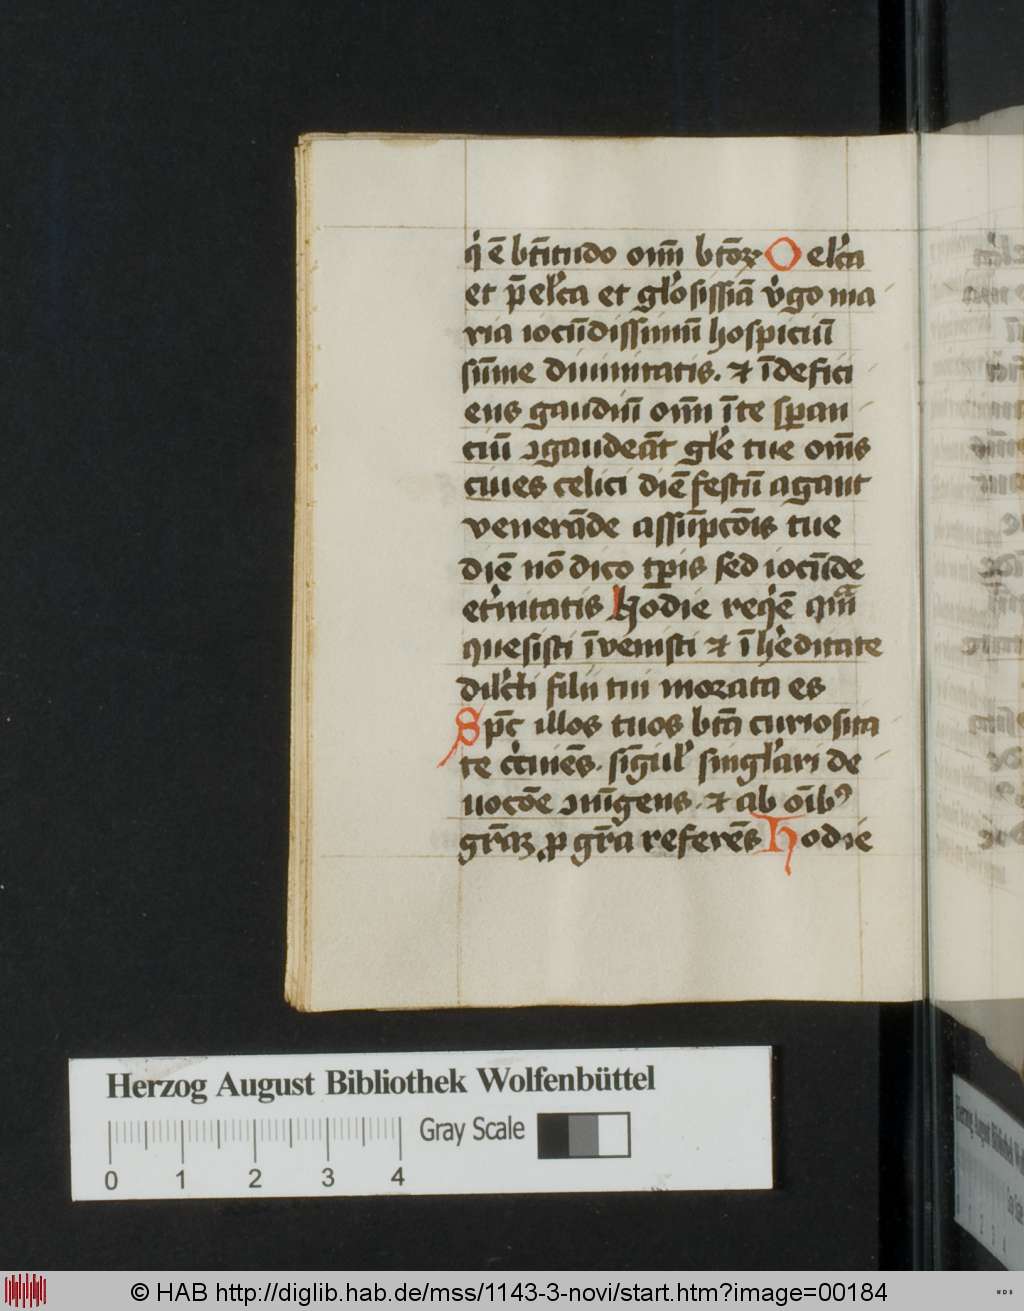 q̇ ē bt̄itudo om̄ bt̄oꝝ O elc̄a
et p̄elc̄a et glōsissīa v̇go ma
ria iocūdissimū hospiciū
sūme diuinitatis. ⁊ īdefici
ens gaudiū om̄ ī te sꝑan
ciū ↄgaudeāt glē tue om̄s
ciues celici diē festū agant
venerāde assūpcōis tue
diē nō dico tꝑis sed iocūde
et̄nitatis Hodie req̇ē quā
quesisti īuenisti ⁊ ī h̄editate
dilc̄ti filii tui morata es
Sp̄c illos tuos bt̄a curiosita
te
siḡul̄ singl̄ari de
uocōe ↄīugens ⁊ ab oībꝰ
gr̄aꝝ ꝓ gr̄a referēs Hodie
Herzog August Bibliothek Wolfenbüttel
Gray Scale
0 1 2 3 4
© HAB http://diglib.hab.de/mss/1143-3-novi/start.htm?image=00184